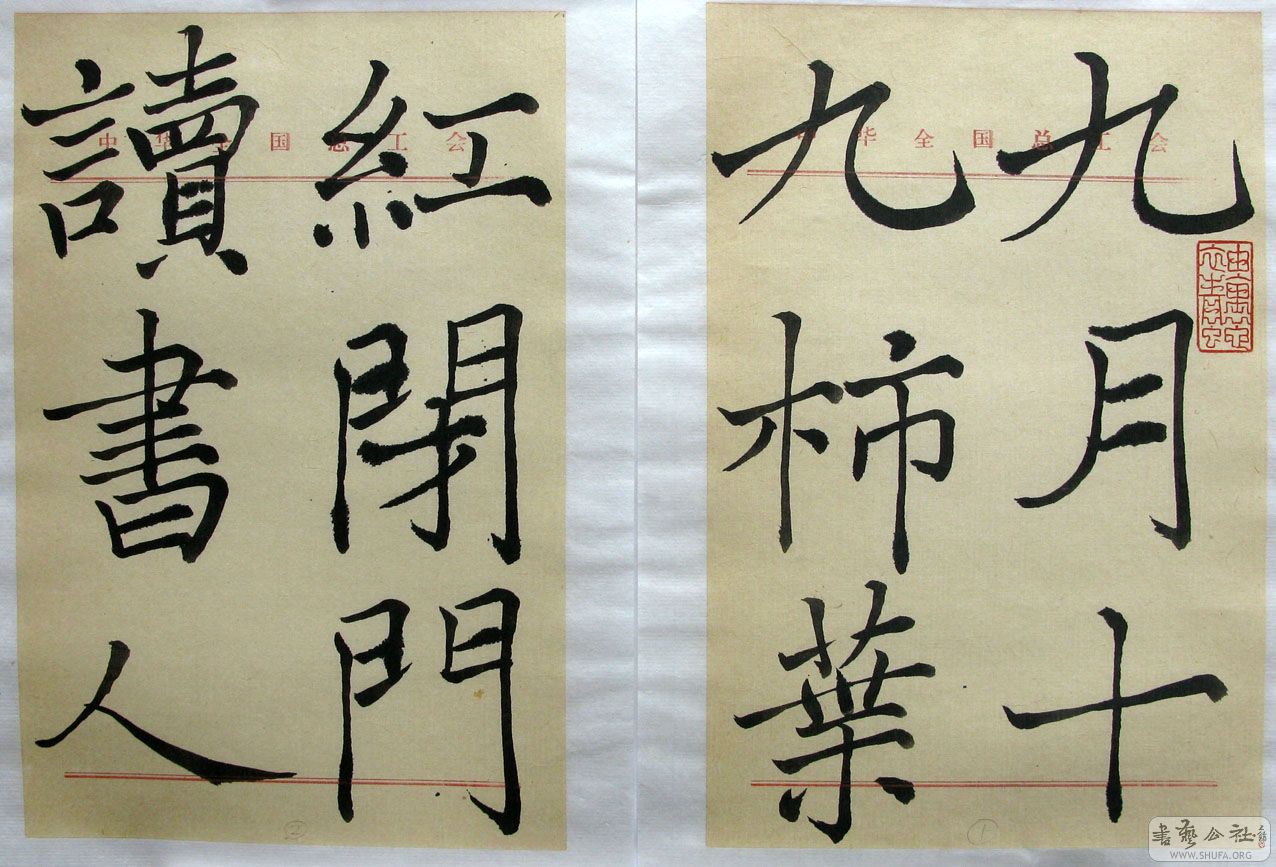 九月十
九柿葉
紅閉門
讀書人
中华全国总工会
中华全国总工会
①
②
書藝公社
WWW.SHUFA.ORG